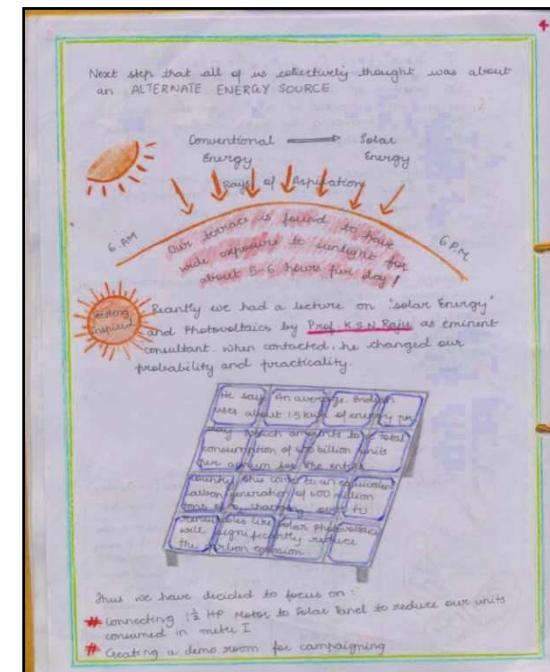 4
Next step that all of us collectively thought was about
an ALTERNATE ENERGY SOURCE
Conventional Solar
Energy Energy
Rays of Aspiration
6 AM
6 P.M
Our terrace is found to have
wide exposure to sunlight for
about 5-6 hours per day!
Getting
Inspired
Recently we had a lecture on 'solar Energy'
and Photovoltaics by Prof. K.S.N. Raju as eminent
consultant. When contacted, he changed our
probability and practicality.
He says An average Indian
uses about 1.5 kwh of energy per
day which amounts to a total
consumption of 600 billion units
per annum for the entire
country. This to an equivalent
carbon generation of 600 million
changing over to
renewables like solar photovoltaics
will significantly reduce
the carbon emission
Thus we have decided to focus on :
# Connecting 1½ HP Motor to Solar Panel to reduce our units
consumed in metre I
# Creating a demo room for campaigning